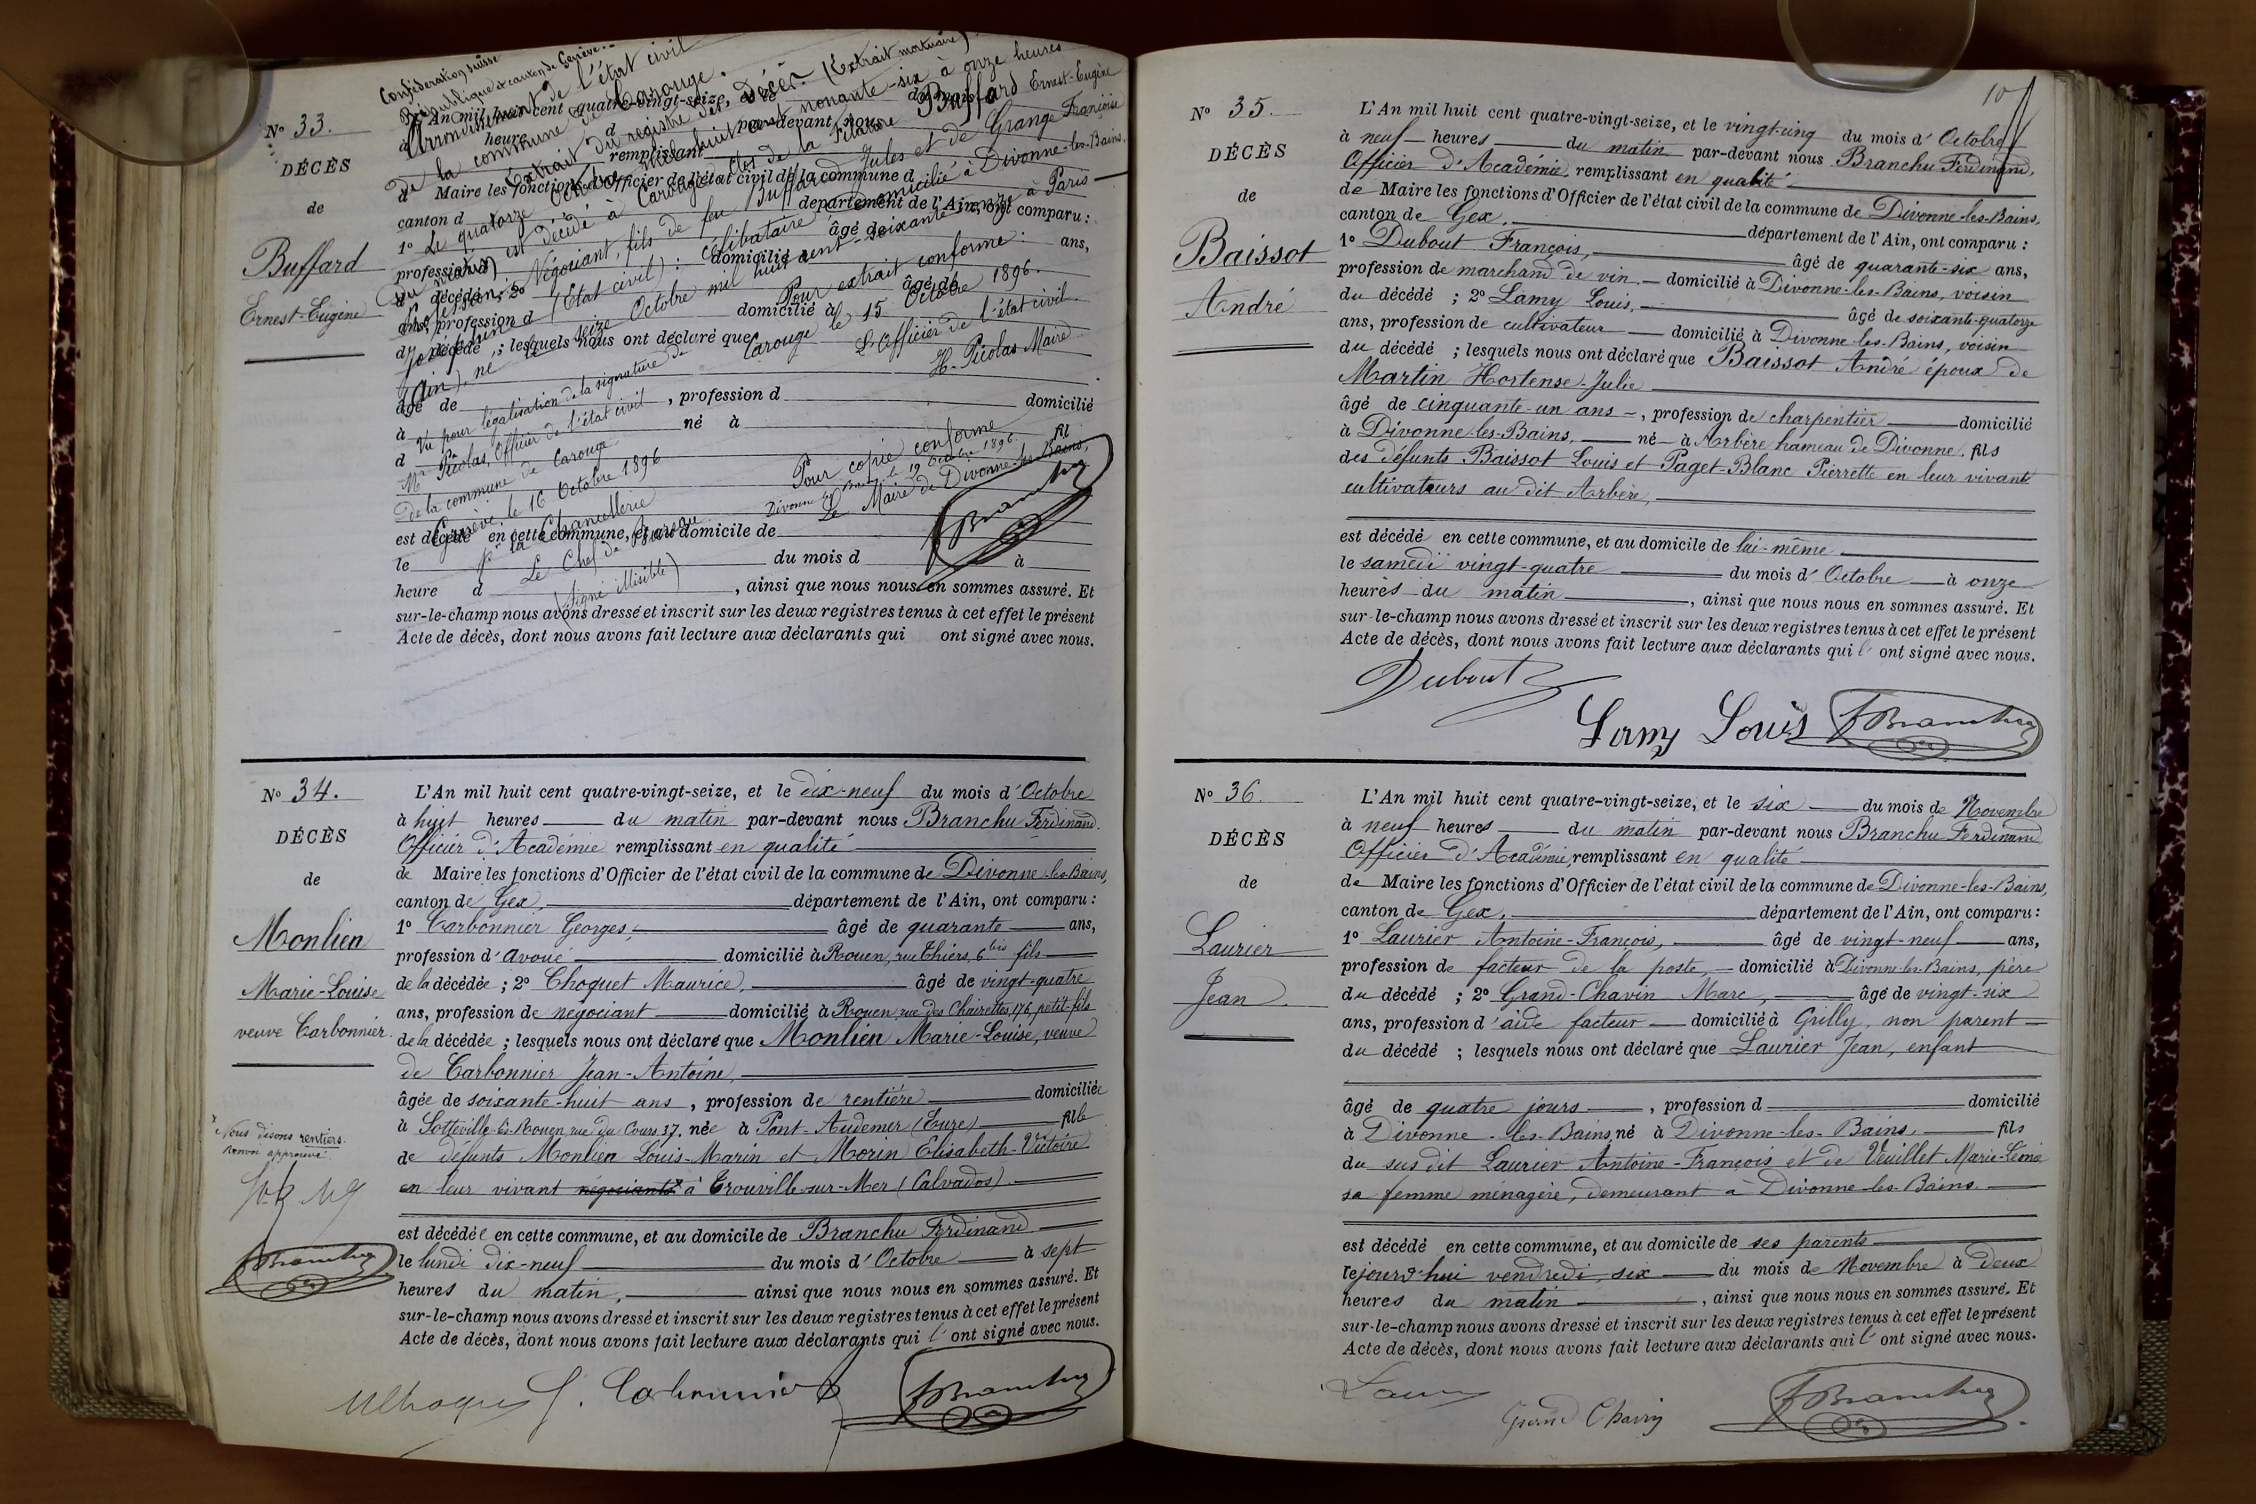 Nº 33.
DÉCÈS
de
Buffard
Ernest-Eugène
Confédération suisse
République et canton de Genève.
Arrondissement de l'état civil
de la commune de Carouge.
Extrait du registre des Décès (Extrait mortuaire)
Le quatorze Octobre mil huit cent nonante-six à onze heures
est décédé à Carouge Buffard Ernest-Eugène
Négociant, fils de feu Buffard Jules et de Grange Françoise
(Etat civil) : célibataire domicilié à Divonne-les-Bains,
(Ain), né le seize Octobre mil huit cent soixante à Paris
Pour extrait conforme :
Carouge le 15 Octobre 1896.
L'Officier de l'état civil
H. Picolas Maire
Vu pour légalisation de la signature de
Mr Picolas, Officier de l'état civil
de la commune de Carouge
Genève, le 16 Octobre 1896
pr la Chancellerie
Le Chef de Bureau
(signé illisible)
Pour copie conforme
Divonne-les-Bains, le 19 Octobre 1896
Le Maire de Divonne-les-Bains,
FBranchu
L'An mil huit cent quatre-vingt-seize, et le du mois d
à heure d par-devant nous
remplissant
d Maire les fonctions d'Officier de l'état civil de la commune d
canton d département de l'Ain, ont comparu :
1º âgé de ans,
profession d domicilié à
d décédé ; 2º âgé de
ans, profession d domicilié à
d décédé ; lesquels nous ont déclaré que
âgé de , profession d domicilié
à né à
d fil
est décédé en cette commune, et au domicile de
le du mois d à
heure d , ainsi que nous nous en sommes assuré. Et
sur-le-champ nous avons dressé et inscrit sur les deux registres tenus à cet effet le présent
Acte de décès, dont nous avons fait lecture aux déclarants qui ont signé avec nous.
Nº 34.
DÉCÈS
de
Monlien
Marie-Louise
veuve Carbonnier.
Nous disons rentiers.
Renvoi approuvé.
FBranchu
L'An mil huit cent quatre-vingt-seize, et le dix-neuf du mois d'Octobre
à huit heures du matin par-devant nous Branchu Ferdinand.
Officier d'Académie remplissant en qualité
de Maire les fonctions d'Officier de l'état civil de la commune de Divonne-les-Bains,
canton de Gex département de l'Ain, ont comparu :
1º Carbonnier Georges, âgé de quarante ans,
profession d'avoué domicilié à Rouen, rue Thiers, 6 bis fils
de la décédée ; 2º Choquet Maurice, âgé de vingt-quatre
ans, profession de négociant domicilié à Rouen, rue des Chairettes, 176, petit-fils
de la décédée ; lesquels nous ont déclaré que Monlien Marie-Louise, veuve
de Carbonnier Jean-Antoine,
âgée de soixante-huit ans , profession de rentière domiciliée
à Sotteville-lès-Rouen, rue du Cours 37, née à Pont-Audemer (Eure) fille
de défunts Monlien Louis-Marin et Morin Elisabeth-Victoire
en leur vivant négociants à Trouville-sur-Mer (Calvados).
est décédée en cette commune, et au domicile de Branchu Ferdinand
le lundi dix-neuf du mois d'Octobre à sept
heures du matin, ainsi que nous nous en sommes assuré. Et
sur-le-champ nous avons dressé et inscrit sur les deux registres tenus à cet effet le présent
Acte de décès, dont nous avons fait lecture aux déclarants qui l'ont signé avec nous.
G. Carbonnier FBranchu
10
Nº 35.
DÉCÈS
de
Baissot
André
L'An mil huit cent quatre-vingt-seize, et le vingt-cinq du mois d'Octobre
à neuf heures du matin par-devant nous Branchu Ferdinand,
Officier d'Académie, remplissant en qualité
de Maire les fonctions d'Officier de l'état civil de la commune de Divonne-les-Bains,
canton de Gex. département de l'Ain, ont comparu :
1º Dubout François, âgé de quarante-six ans,
profession de marchand de vin, domicilié à Divonne-les-Bains, voisin
du décédé ; 2º Lamy Louis, âgé de soixante-quatorze
ans, profession de cultivateur domicilié à Divonne-les-Bains, voisin
du décédé ; lesquels nous ont déclaré que Baissot André époux de
Martin Hortense-Julie
âgé de cinquante-un ans , profession de charpentier domicilié
à Divonne-les-Bains, né à Arbère hameau de Divonne, fils
des défunts Baissot Louis et Paget-Blanc Pierrette en leur vivant
cultivateurs au dit Arbère,
est décédé en cette commune, et au domicile de lui-même
le samedi vingt-quatre du mois d'Octobre à onze
heures du matin , ainsi que nous nous en sommes assuré. Et
sur-le-champ nous avons dressé et inscrit sur les deux registres tenus à cet effet le présent
Acte de décès, dont nous avons fait lecture aux déclarants qui l'ont signé avec nous.
Dubout
Lamy Louis FBranchu
Nº 36.
DÉCÈS
de
Laurier
Jean
L'An mil huit cent quatre-vingt-seize, et le six du mois de Novembre
à neuf heures du matin par-devant nous Branchu Ferdinand
Officier d'Académie, remplissant en qualité
de Maire les fonctions d'Officier de l'état civil de la commune de Divonne-les-Bains,
canton de Gex. département de l'Ain, ont comparu :
1º Laurier Antoine-François, âgé de vingt-neuf ans,
profession de facteur de la poste, domicilié à Divonne-les-Bains, père
du décédé ; 2º Grand-Chavin Marc, âgé de vingt-six
ans, profession d'aide facteur domicilié à Grilly, non parent
du décédé ; lesquels nous ont déclaré que Laurier Jean, enfant
âgé de quatre jours , profession d domicilié
à Divonne-les-Bains, né à Divonne-les-Bains, fils
du sus dit Laurier Antoine-François et de Veuillet Marie-Léonie
sa femme ménagère, demeurant à Divonne-les-Bains.
est décédé en cette commune, et au domicile de ses parents
lejourd'hui vendredi, six du mois de Novembre à deux
heures du matin , ainsi que nous nous en sommes assuré. Et
sur-le-champ nous avons dressé et inscrit sur les deux registres tenus à cet effet le présent
Acte de décès, dont nous avons fait lecture aux déclarants qui l'ont signé avec nous.
Grand Chavin FBranchu